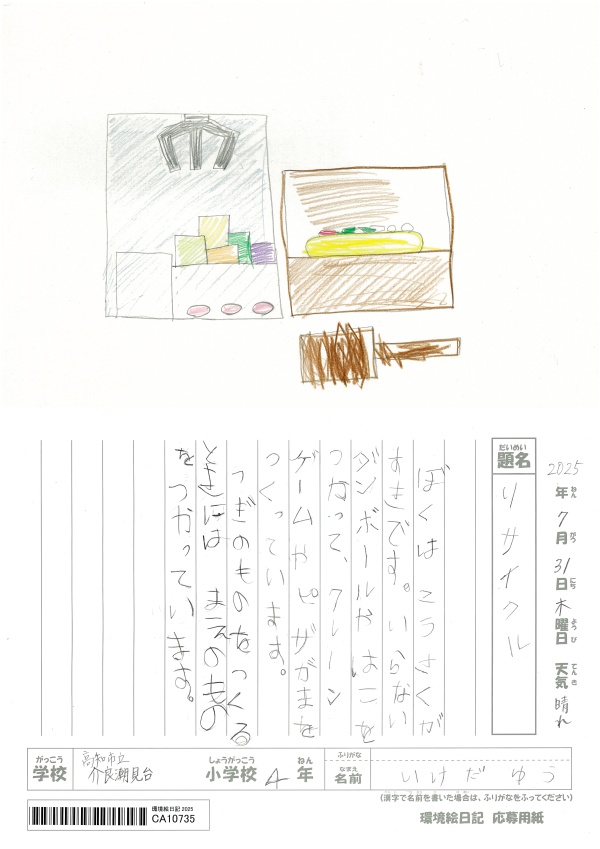 2025年7月31日木曜日 天気晴れ
ねん がつ にち ようび てんき
だいめい
題名 リサイクル
ぼくはこうさくが
すきです。いらない
ダンボールやはこを
つかって、クレーン
ゲームやピザがまを
つくっています。
つぎのものをつくる
ときにはまえのもの
をつかっています。
がっこう しょうがっこう ねん ふりがな
学校 高知市立 介良潮見台 小学校 4年
なまえ
名前 いけだ ゆう
(漢字で名前を書いた場合は、ふりがなをふってください)
環境絵日記 2025
CA10735
環境絵日記 応募用紙